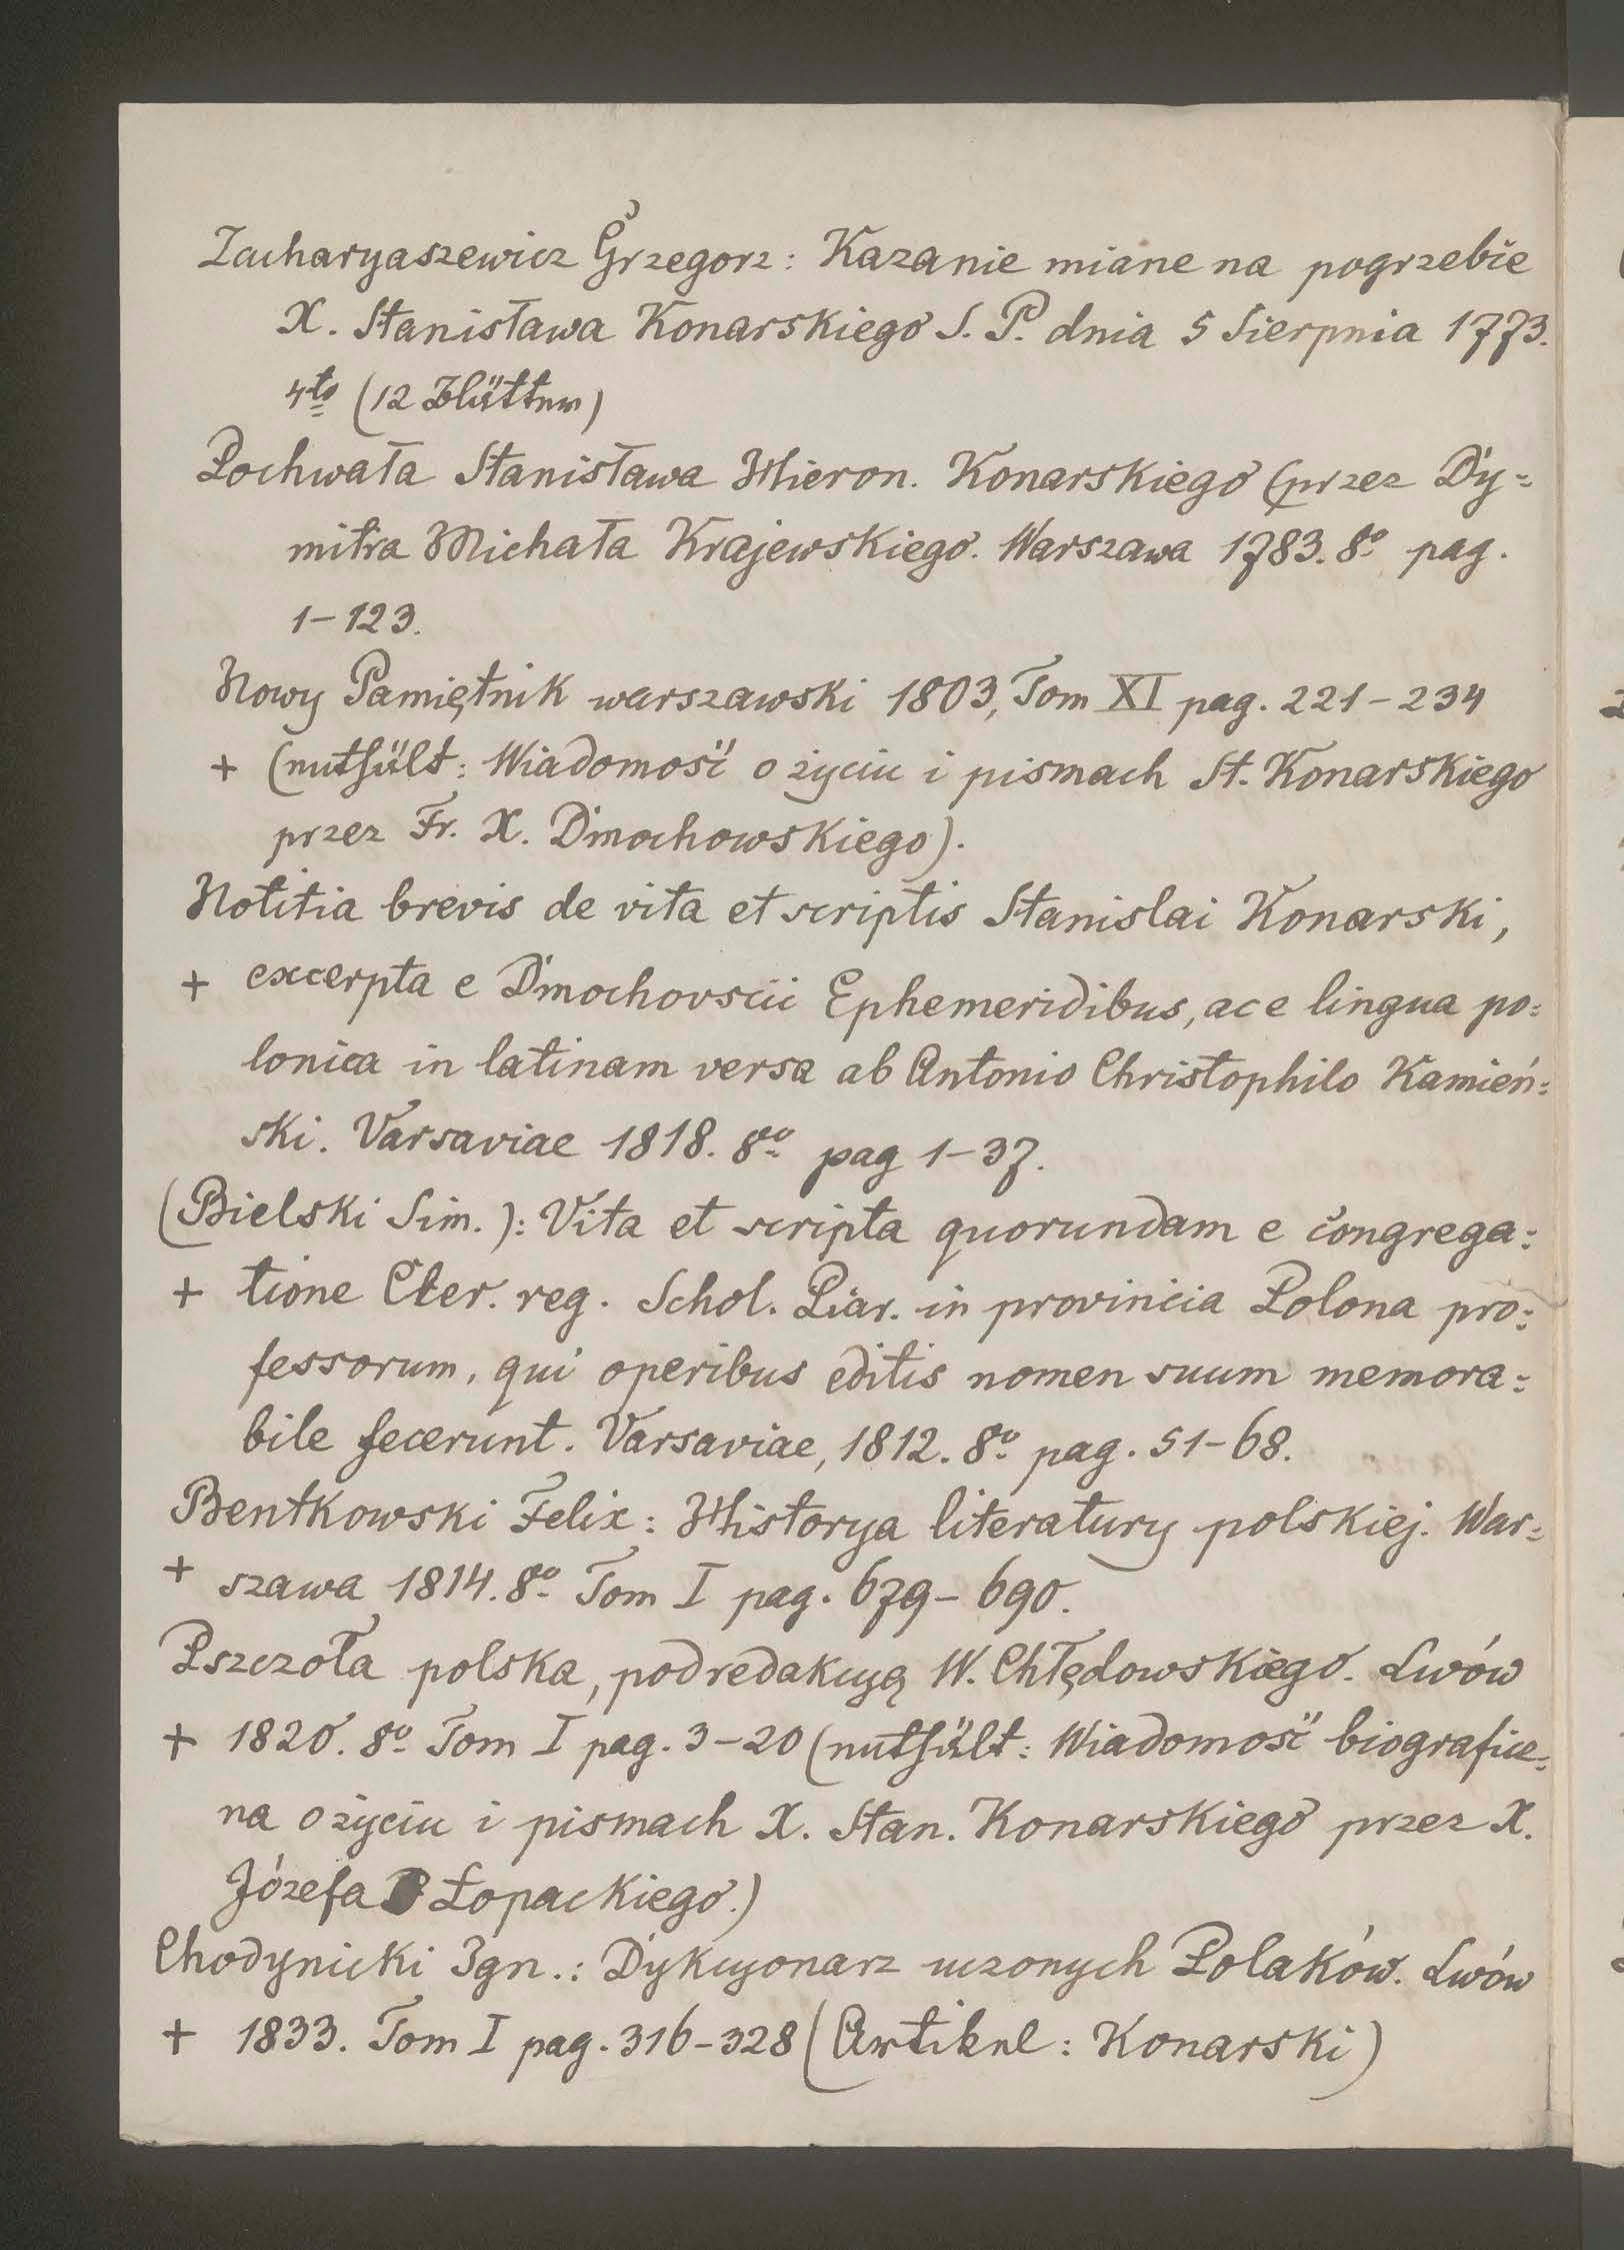 Zacharyaszewicz Grzegorz: Kazanie miane na pogrzebie
X. Stanisława Konarskiego S. P. dnia 5 Sierpnia 1773.
4to (12 Blätter)
Pochwała Stanisława Hieron. Konarskiego (przez Dy=
mitra Michała Krajewskiego. Warszawa 1783. 8o pag.
1-123.
Nowy Pamiętnik warszawski 1803, Tom XI pag. 221-234
+ (enthält: Wiadomość o życiu i pismach St. Konarskiego
przez Fr. X. Dmochowskiego).
Notitia brevis de vita et scriptis Stanislai Konarski,
+ excerpta e Dmochovscii Ephemeridibus, ac e lingua po=
lonica in latinam versa ab Antonio Christophilo Kamień=
ski. Varsaviae 1818. 8vo pag 1-37.
(Bielski Sim.): Vita et scripta quorundam e congrega=
+ tione Cler. reg. Schol. Piar. in provincia Polona pro=
fessorum, qui operibus editis nomen suum memora=
bile fecerunt. Varsaviae, 1812. 8o pag. 51-68.
Bentkowski Felix: Historya literatury polskiej. War=
+ szawa 1814. 8vo Tom I pag. 679-690.
Pszczoła polska, pod redakcyą W. Chłędowskiego. Lwów
+ 1820. 8o Tom I pag. 3-20 (enthält: Wiadomość biografic=
na o życiu i pismach X. Stan. Konarskiego przez X.
Józefa Łopackiego.)
Chodynicki Ign.: Dykcyonarz uczonych Polaków. Lwów
+ 1833. Tom I pag. 316-328 (Artikel: Konarski)